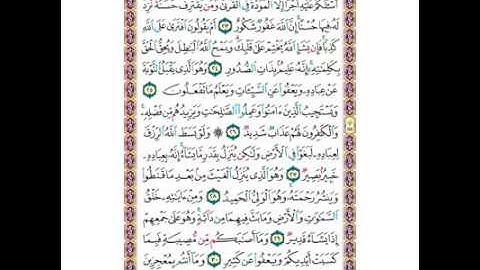 أَسۡـَٔلُكُمۡ عَلَيۡهِ أَجۡرًا إِلَّا ٱلۡمَوَدَّةَ فِي ٱلۡقُرۡبَىٰۗ وَمَن يَقۡتَرِفۡ حَسَنَةٗ نَّزِدۡ لَهُۥ
فِيهَا حُسۡنًاۚ إِنَّ ٱللَّهَ غَفُورٞ شَكُورٌ ٢٣ أَمۡ يَقُولُونَ ٱفۡتَرَىٰ عَلَى ٱللَّهِ
كَذِبٗاۖ فَإِن يَشَإِ ٱللَّهُ يَخۡتِمۡ عَلَىٰ قَلۡبِكَۗ وَيَمۡحُ ٱللَّهُ ٱلۡبَٰطِلَ وَيُحِقُّ ٱلۡحَقَّ
بِكَلِمَٰتِهِۦٓۚ إِنَّهُۥ عَلِيمُۢ بِذَاتِ ٱلصُّدُورِ ٢٤ وَهُوَ ٱلَّذِي يَقۡبَلُ ٱلتَّوۡبَةَ
عَنۡ عِبَادِهِۦ وَيَعۡفُواْ عَنِ ٱلسَّيِّـَٔاتِ وَيَعۡلَمُ مَا تَفۡعَلُونَ ٢٥
وَيَسۡتَجِيبُ ٱلَّذِينَ ءَامَنُواْ وَعَمِلُواْ ٱلصَّٰلِحَٰتِ وَيَزِيدُهُم مِّن فَضۡلِهِۦۚ
وَٱلۡكَٰفِرُونَ لَهُمۡ عَذَابٞ شَدِيدٞ ٢٦ ۞ وَلَوۡ بَسَطَ ٱللَّهُ ٱلرِّزۡقَ
لِعِبَادِهِۦ لَبَغَوۡاْ فِي ٱلۡأَرۡضِ وَلَٰكِن يُنَزِّلُ بِقَدَرٖ مَّا يَشَآءُۚ إِنَّهُۥ بِعِبَادِهِۦ
خَبِيرُۢ بَصِيرٞ ٢٧ وَهُوَ ٱلَّذِي يُنَزِّلُ ٱلۡغَيۡثَ مِنۢ بَعۡدِ مَا قَنَطُواْ
وَيَنشُرُ رَحۡمَتَهُۥۚ وَهُوَ ٱلۡوَلِيُّ ٱلۡحَمِيدُ ٢٨ وَمِنۡ ءَايَٰتِهِۦ خَلۡقُ
ٱلسَّمَٰوَٰتِ وَٱلۡأَرۡضِ وَمَا بَثَّ فِيهِمَا مِن دَآبَّةٖۚ وَهُوَ عَلَىٰ جَمۡعِهِمۡ
إِذَا يَشَآءُ قَدِيرٞ ٢٩ وَمَآ أَصَٰبَكُم مِّن مُّصِيبَةٖ فَبِمَا
كَسَبَتۡ أَيۡدِيكُمۡ وَيَعۡفُواْ عَن كَثِيرٖ ٣٠ وَمَآ أَنتُم بِمُعۡجِزِينَ